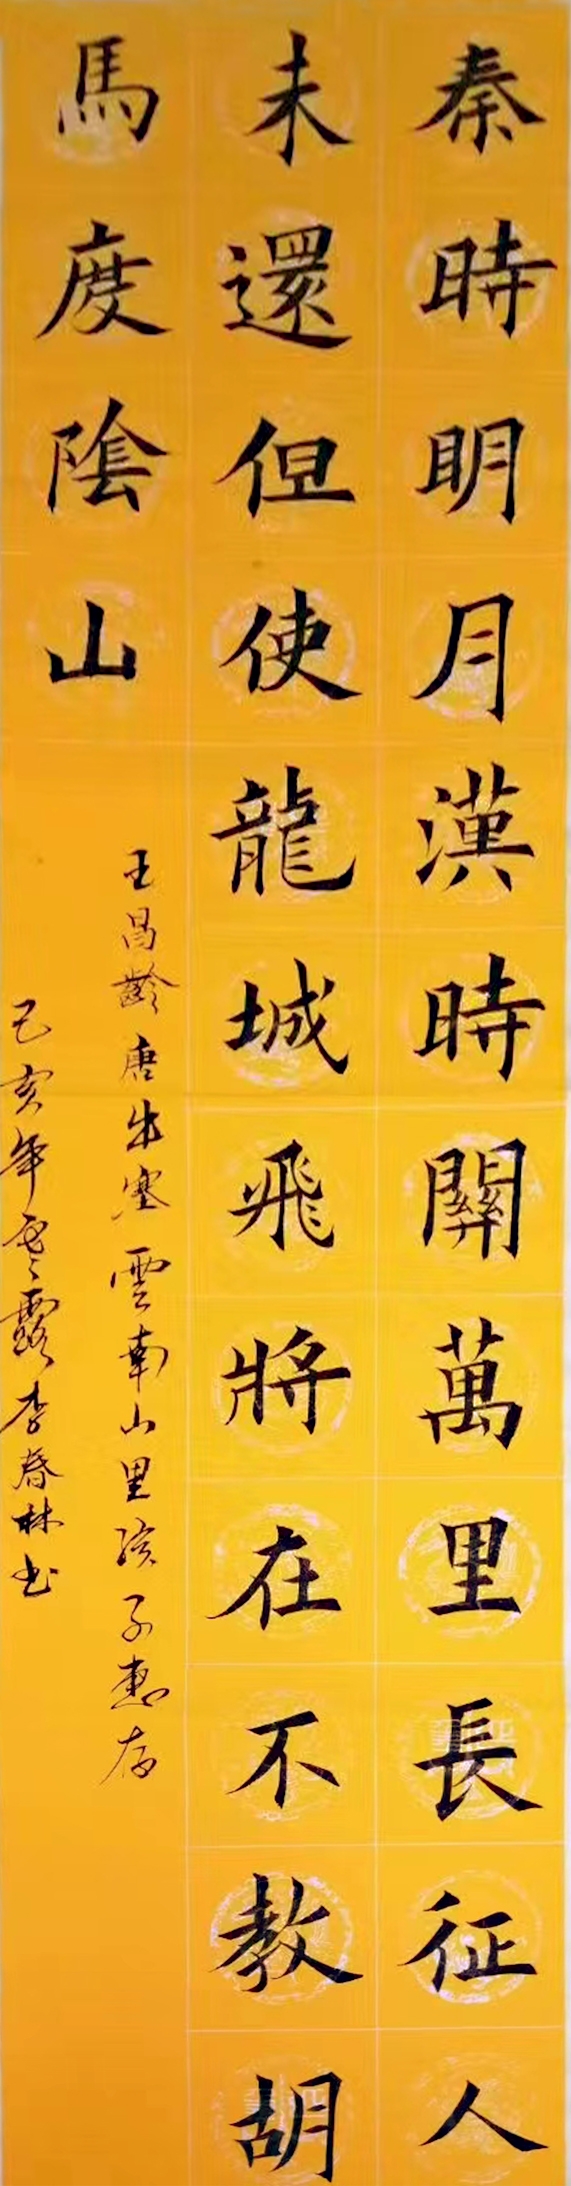 秦時明月漢時關萬里長征人
未還但使龍城飛將在不教胡
馬度陰山
王昌齡唐出塞雲南山里孩子惠存
己亥年寒露李春林书